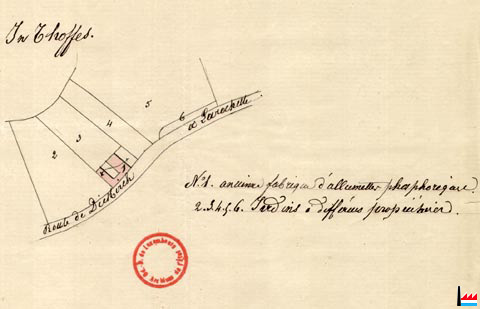 In Thoffes.
5
6
4
3
2
1
Route de Diekirch
à Larochette
N°1. ancienne fabrique d'allumettes phosphorique
2.3.4.5.6. Jardins à différens propriétaires.